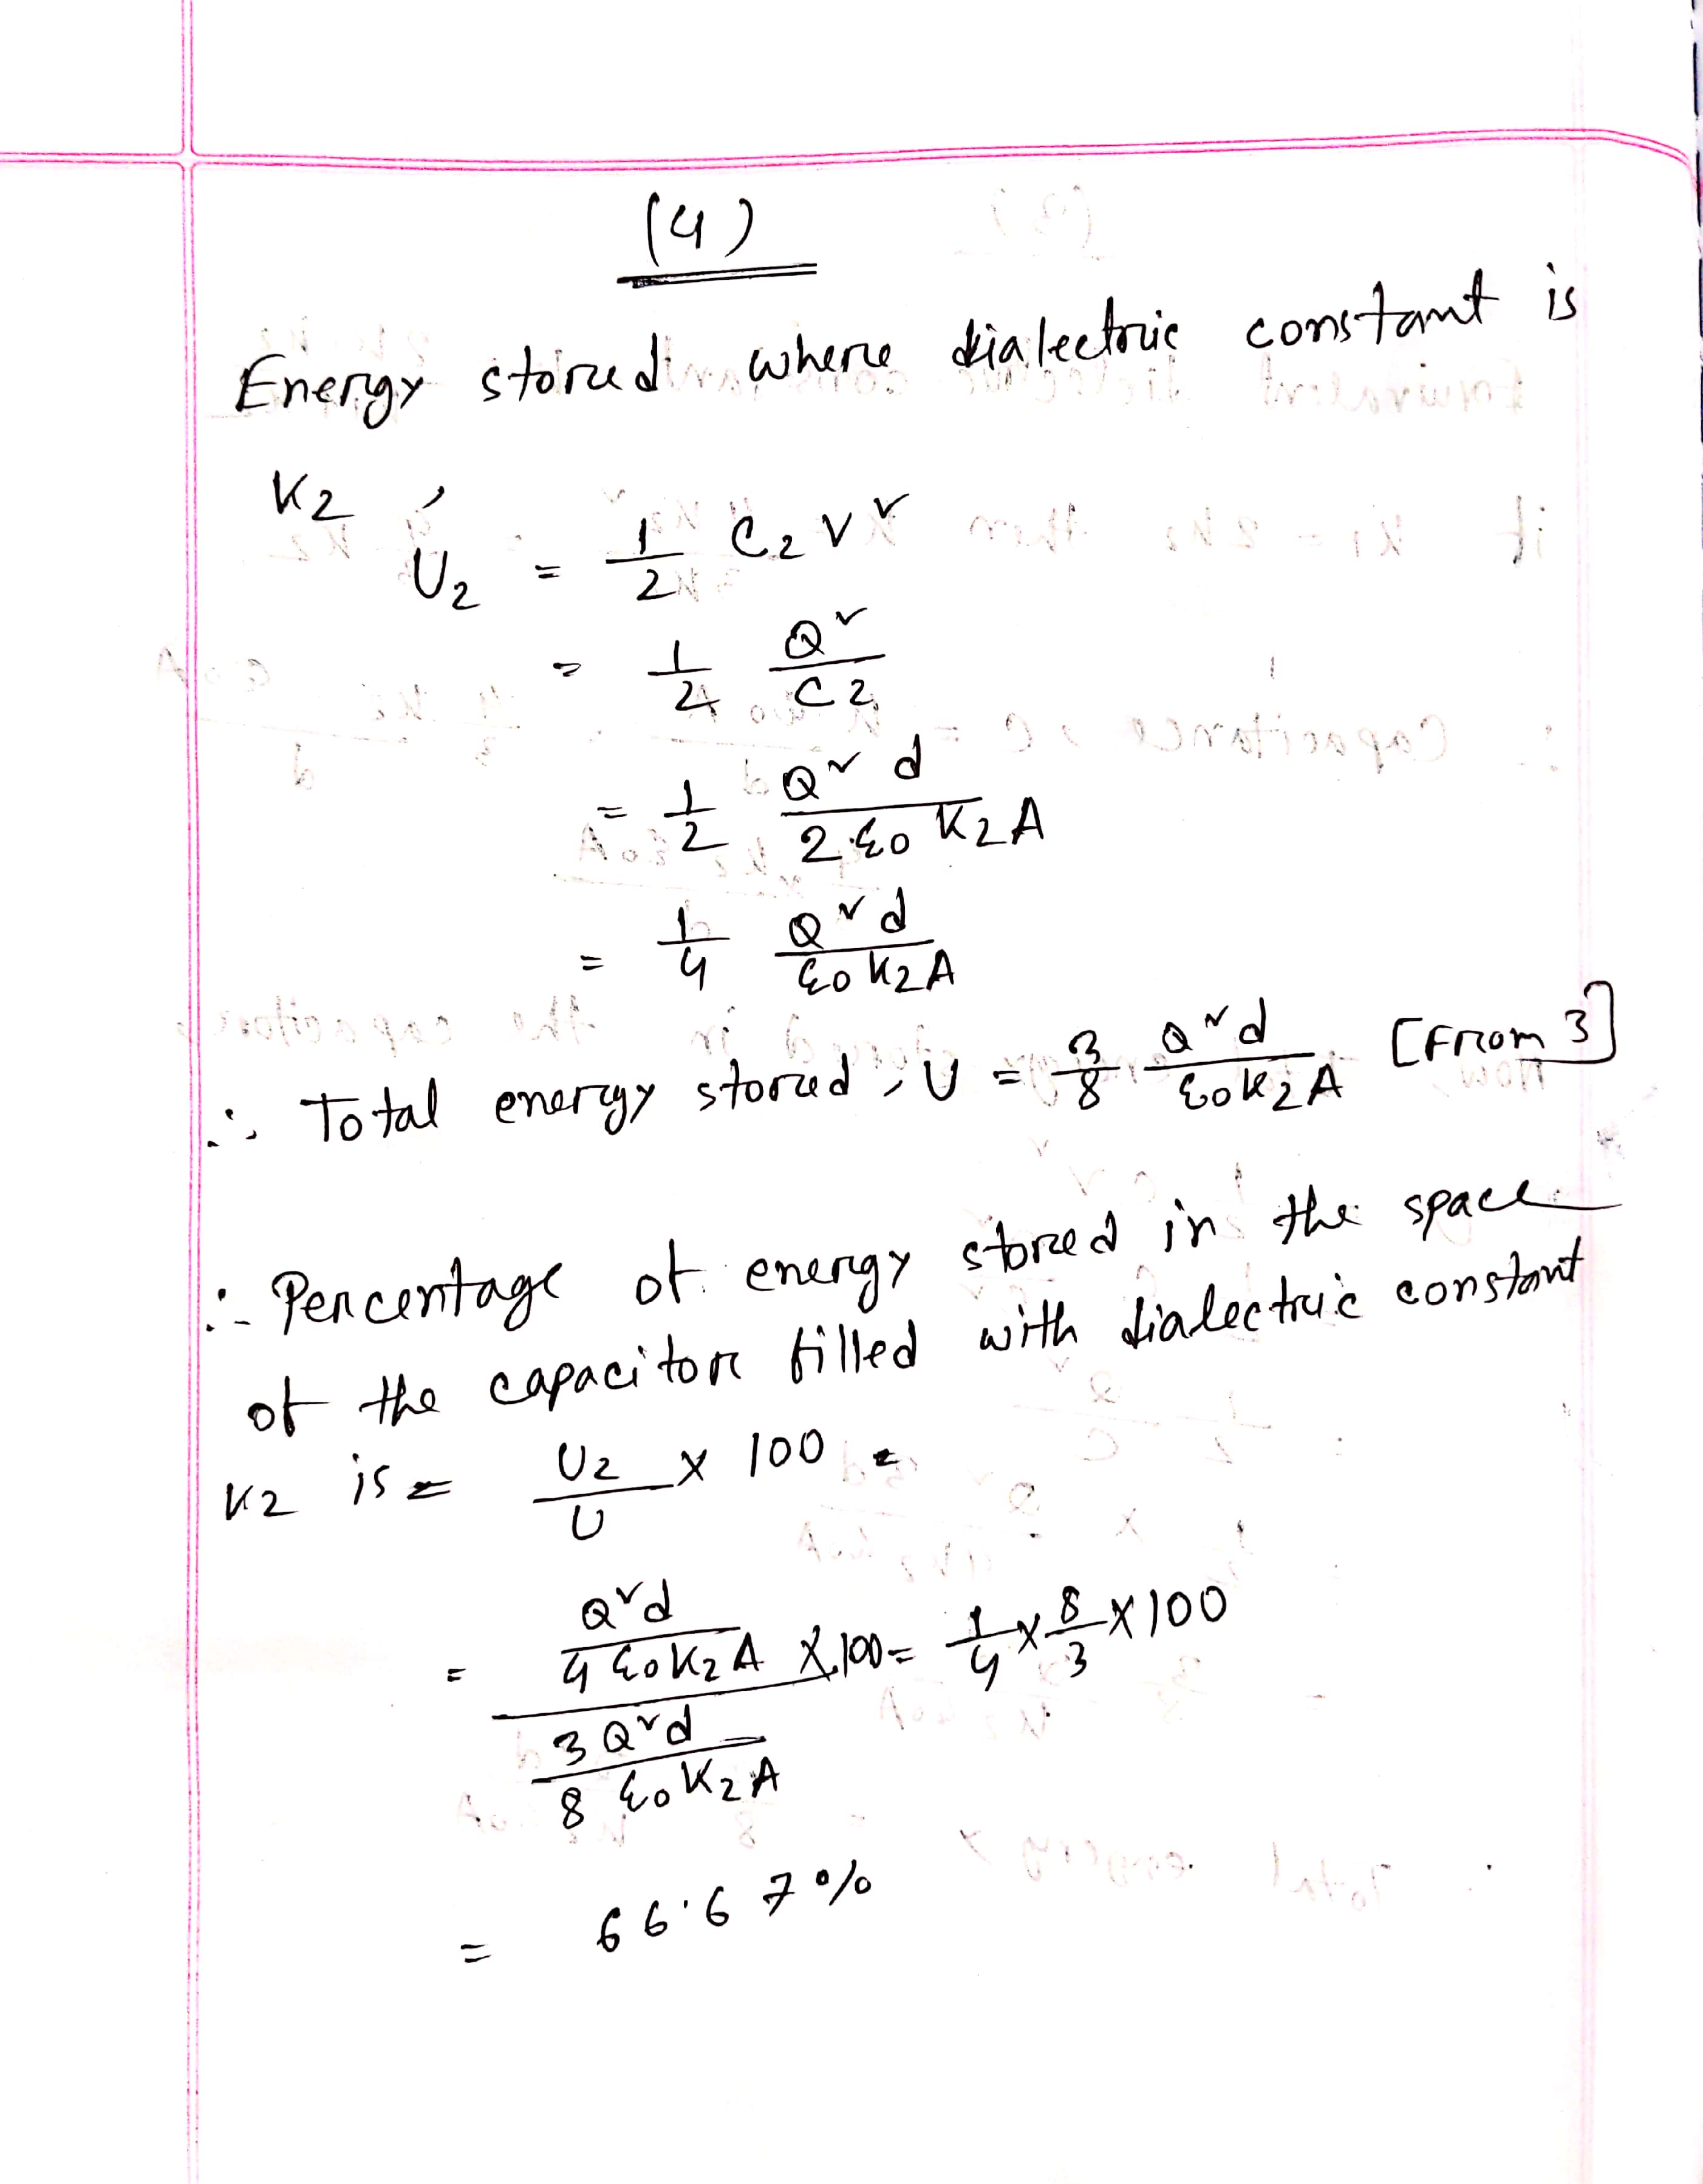 (4)
Energy stored where dialectric constant is
K2
U2 = 1/2 C2 V²
= 1/2 Q²/C2
= 1/2 Q² d / 2 ε0 K2 A
= 1/4 Q² d / ε0 K2 A
∴ Total energy stored, U = 3/8 Q² d / ε0 K2 A [From 3]
∴ Percentage of energy stored in the space
of the capacitor filled with dialectric constant
K2 is = U2/U × 100 =
= (Q² d / 4 ε0 K2 A) / (3 Q² d / 8 ε0 K2 A) × 100 = 1/4 × 8/3 × 100
= 66.67%